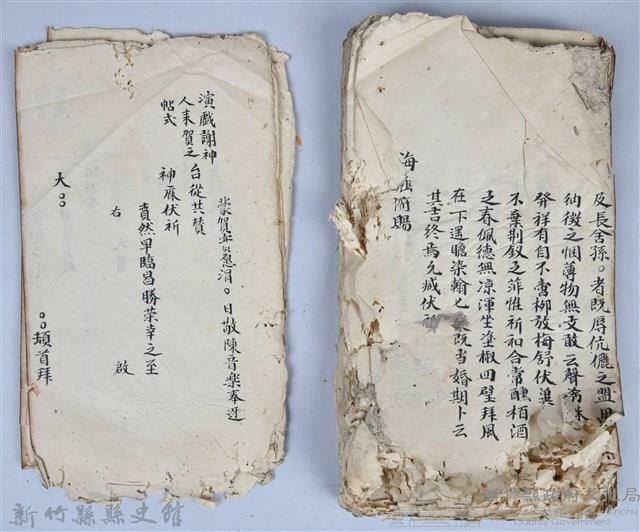 及長舍孫。者既辱伉儷之盟
納徵之悃薄物無文敢云聲
發祥有自不啻柳放梅舒伏冀
不棄荊釵之菲惟祈和合常醺栢酒
之春佩德無涼渾生塗椒四壁拜風
在下遥瞻染翰
既當婚期卜云
其吉終焉允臧伏祈
海涵俯賜
演戲謝神
人來賀之
帖式
蒙賀
涓。日敬陳音樂奉迓
台從共賛
神庥伏祈
賁然早臨昌勝榮幸之至
右
啟
大。。
。。頓首拜
新竹縣縣史館
新竹縣政府文化局
County Government